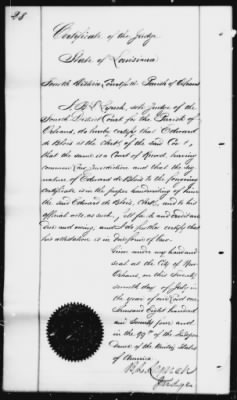 28
Certificate of the Judge
State of Louisiana
Fourth District Court for the Parish of Orleans
I, B. L. Lynch, sole Judge of the
Fourth District Court for the Parish of
Orleans, do hereby certify that Edward
de Blois is the clerk of the said Court,
that the same is a Court of Record, having
common law jurisdiction and that the sig
nature of Edward de Blois to the foregoing
certificate is in the proper handwriting of him
the said Edward de Blois, clerk, and to his
official acts as such, full faith and credit are
due and owing, and I do further certify that
his attestation is in due form of law.
Given under my hand and
seal at the City of New
Orleans, on this twenty
seventh day of July in
the year of our Lord one
thousand Eight hundred
and Seventy four, and
in the 99th of the Indepen
dence of the United States
of America
Lynch
Judge